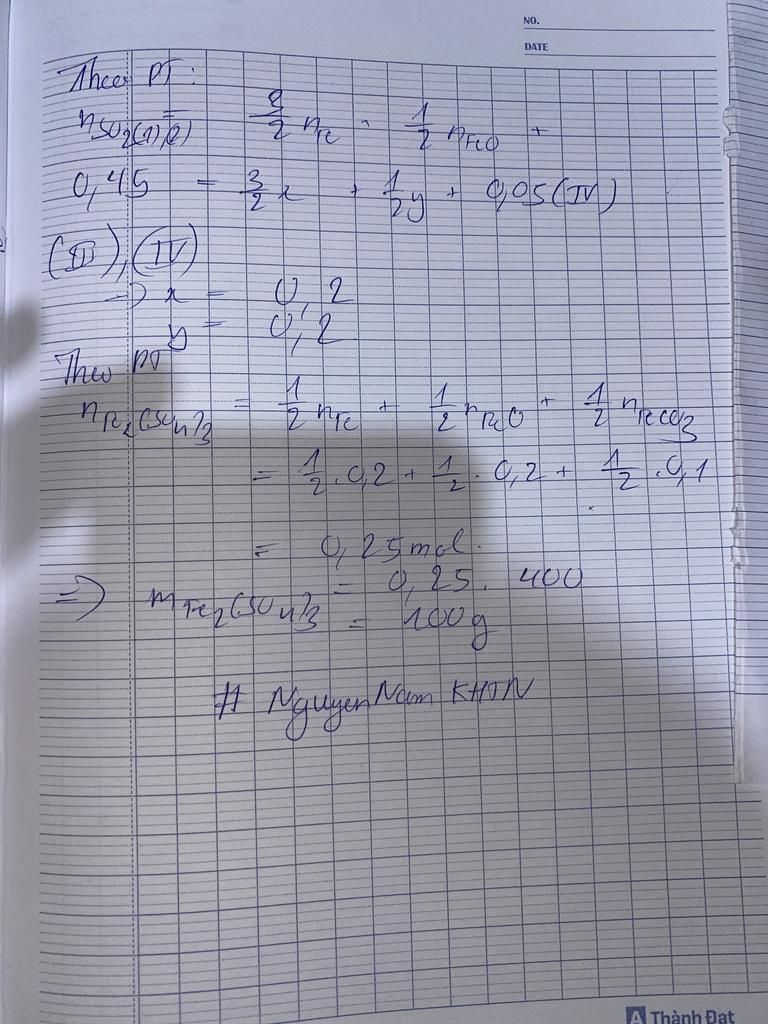 NO.
DATE
Theo PT:
nSO2(1),(2) = 3/2 nFe + 1/2 nFeO +
0,45 = 3/2x + 1/2y + 0,05 (IV)
(III), (IV)
=> x = 0,2
y = 0,2
Theo PT
nFe2(SO4)3 = 1/2 nFe + 1/2 nFeO + 1/2 nFeCO3
= 1/2 . 0,2 + 1/2 . 0,2 + 1/2 . 0,1
= 0,25 mol.
=> mFe2(SO4)3 = 0,25 . 400
= 100g
# Nguyen Nam KHTN
A Thành Đạt